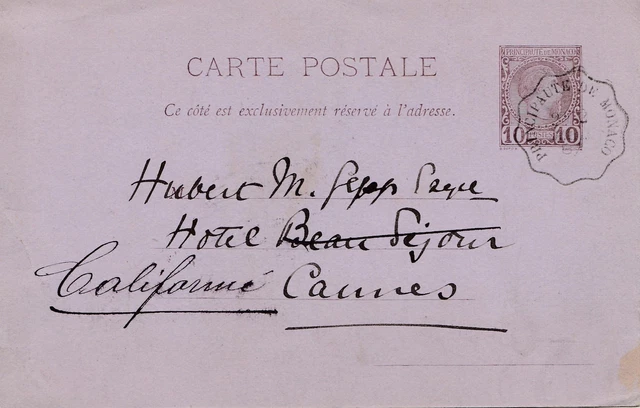 CARTE POSTALE
Ce côté est exclusivement réservé à l'adresse.
PRINCIPAUTÉ DE MONACO
10 POSTES 10
PRINCIPAUTÉ DE MONACO
Hubert M.
Hotel Beau Séjour
Californie Cannes